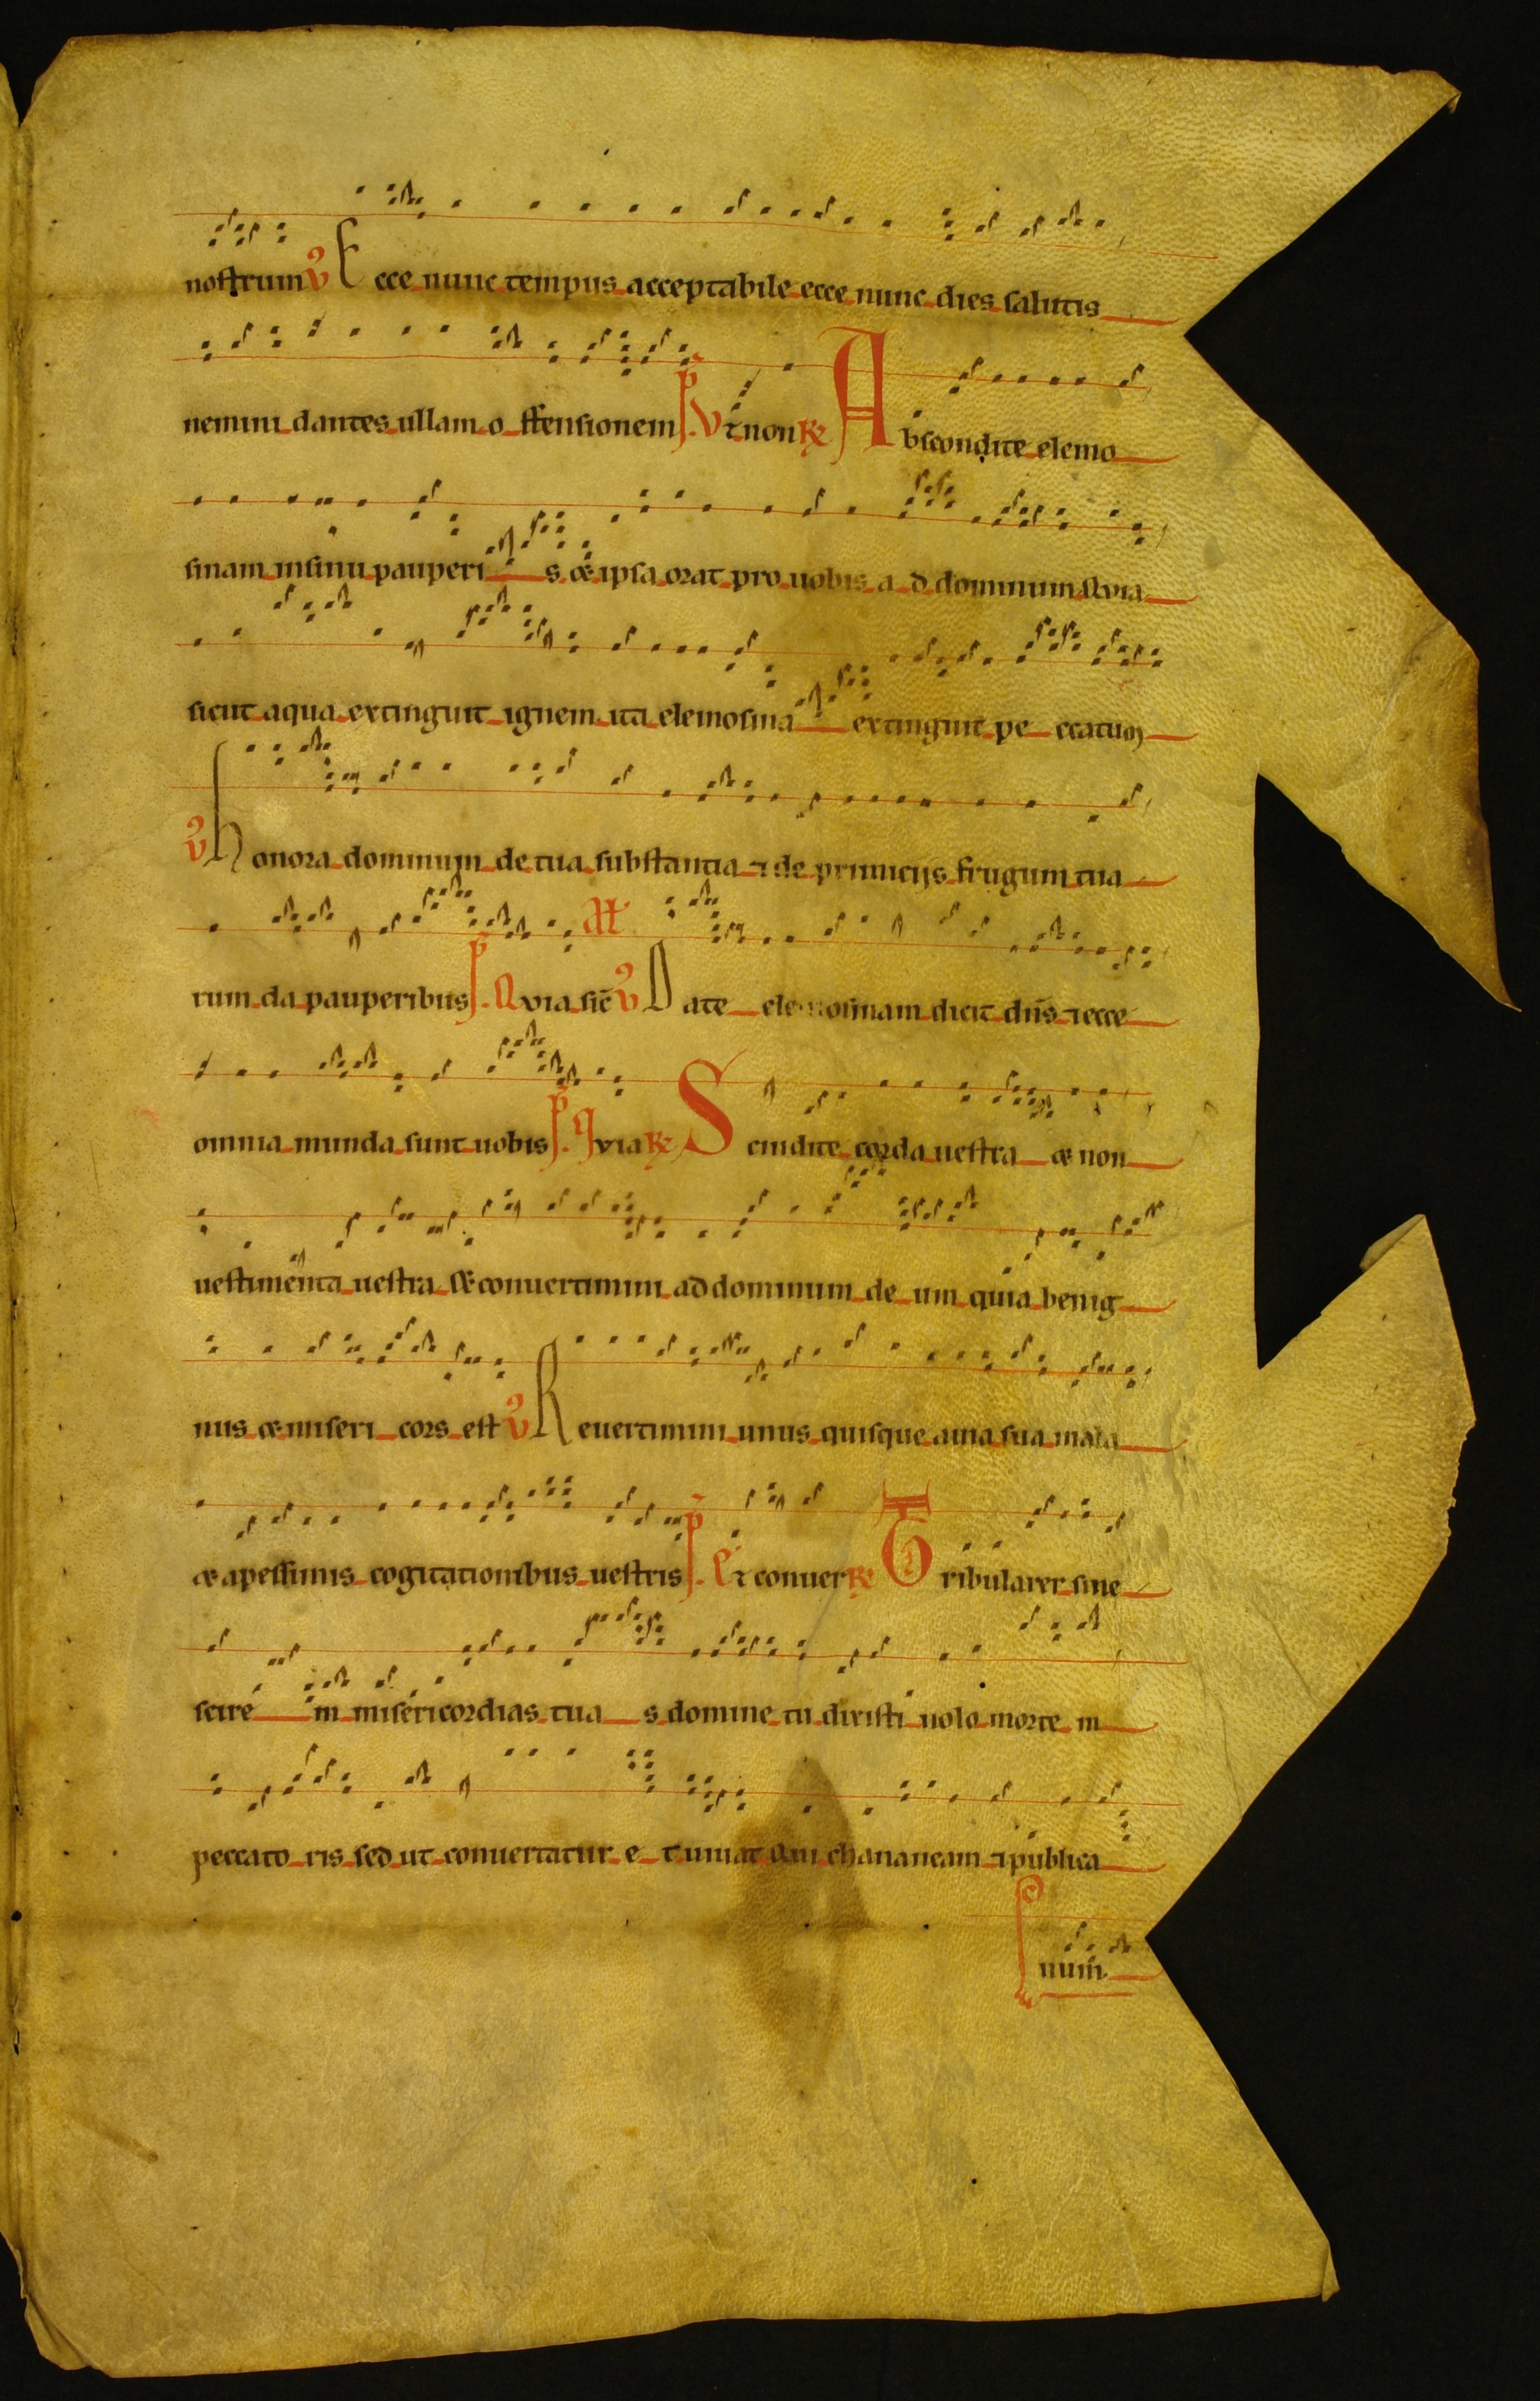 nostrum V Ecce nunc tempus acceptabile ecce nunc dies salutis
nemini dantes ullam offensionem P. Vt non R Abscondite elemo
sinam in sinu pauperis & ipsa orat pro uobis ad dominum Quia
sicut aqua extinguit ignem ita elemosina extinguit peccatum
V honora dominum de tua substantia ⁊ de primicijs frugum tua
rum da pauperibus P. Quia sic̄ al V Date elemosinam dicit dn̄s ⁊ ecce
omnia munda sunt uobis P. Quia R Scindite corda uestra & non
uestimenta uestra & conuertimini ad dominum deum quia benig
nus & misericors est V Reuertimini unus quisque a uia sua mala
& a pessimis cogitationibus uestris P. Et conuer R Tribularer si ne
scirem misericordias tuas domine tu dixisti nolo morte m
peccatoris sed ut conuertatur et uiuat qui chananeam ⁊ publica
num